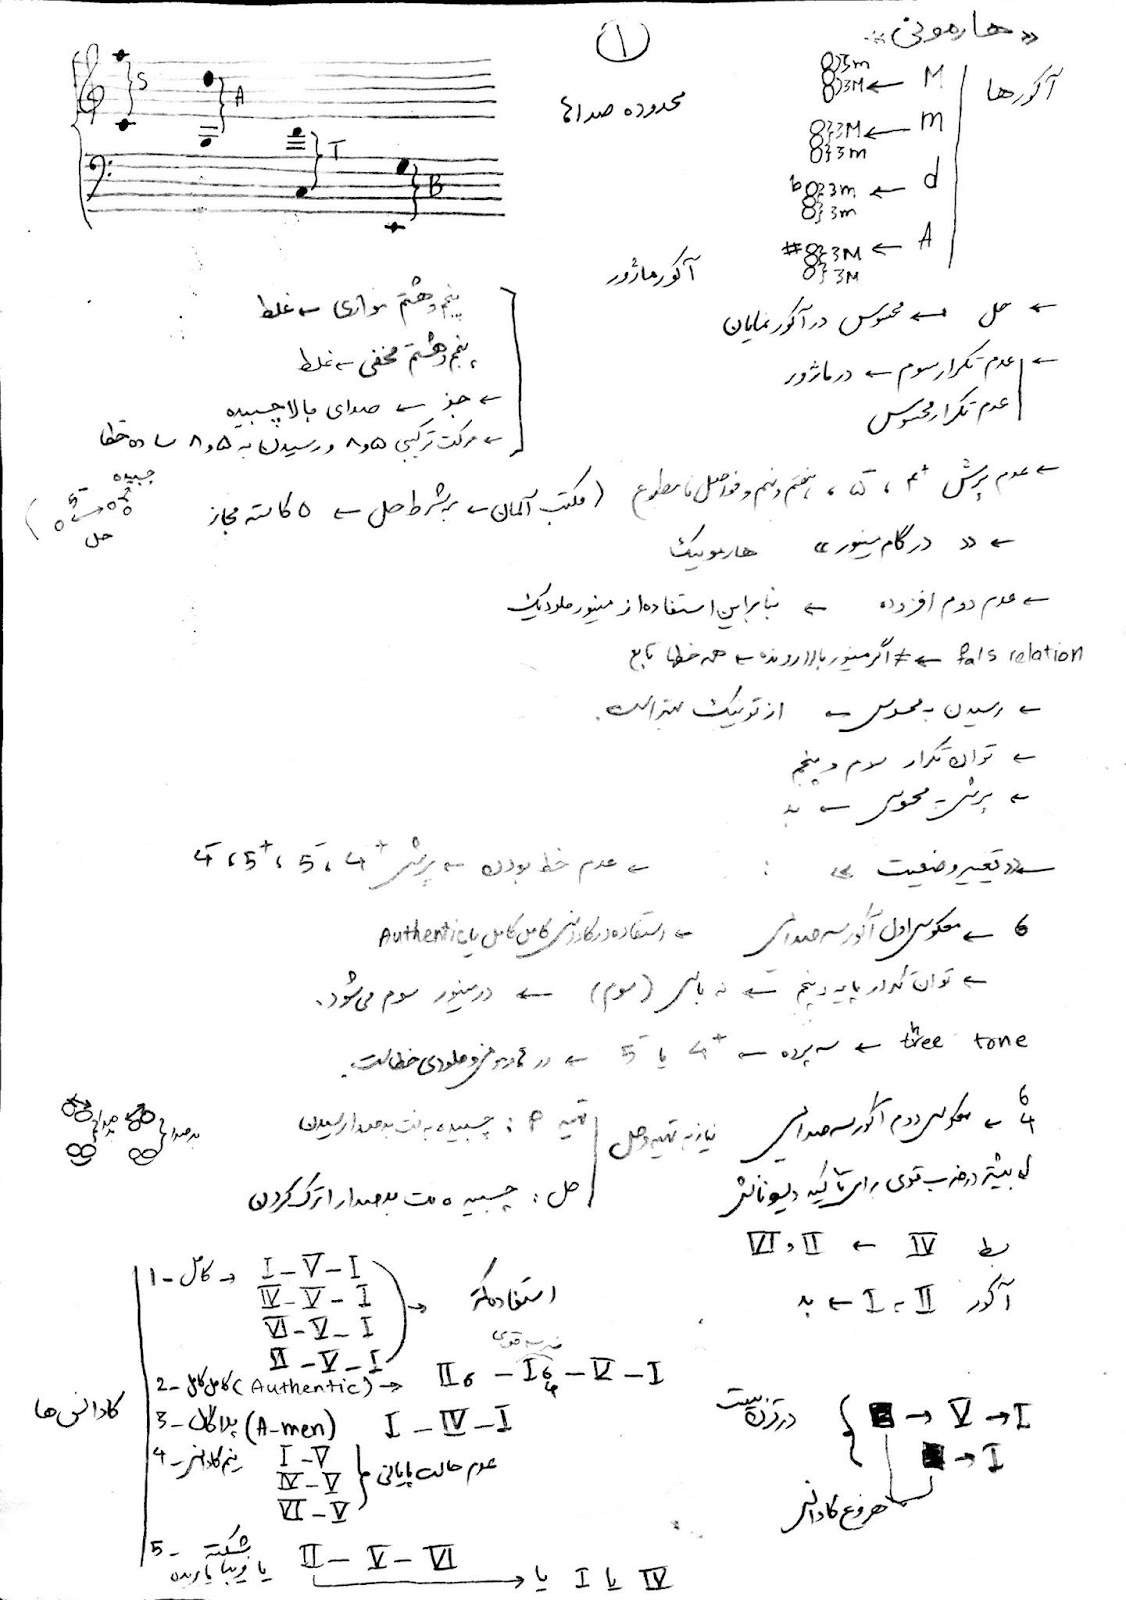 «هارمونی»
۱
آکورها
M ← 3m 3M
m ← 3M 3m
d ← b 3m 3m
A ← # 3M 3M
محدوده صداها
S A T B
آکور ماژور
← حل ← محسوس در آکور نمایان
← عدم تکرار سوم ← در ماژور
عدم تکرار محسوس
پنجم و هشتم موازی ← غلط
پنجم و هشتم مخفی ← غلط
← جز ← صدای بالا چسبیده
← حرکت ترکیبی ۵ و ۸ و رسیدن به ۵ و ۸ ساده خطا
← عدم پرش ۴+ ، ۵- ، هفتم و نهم و فواصل نامطبوع (مکتب آلمان ← به شرط حل ← ۵ کاسته مجاز
چسبیده
5-
حل )
← « در گام مینور » هارمونیک
← عدم دوم افزوده ← بنابراین استفاده از مینور ملودیک
fals relation ← ≠ اگر مینور بالارونده ← همه خطها تابع
← رسیدن به محسوس ← از تونیک بهتر است.
← توان تکرار سوم و پنجم
← پرش به محسوس ← بد
← «تغییر وضعیت» : ← عدم خط بودن ← پرش 4+ ، 5- ، 5+ ، 4-
6 ← معکوس اول آکور سه صدایی ← استفاده در کادانس کامل کامل یا Authentic
← توان تکرار پایه و پنجم ← نه باس (سوم) ← در مینور سوم می‌شود.
three tone ← سه پرده ← 4+ یا 5- ← در هارمونی و ملودی خطاست.
6 4 ← معکوس دوم آکور سه صدایی
نیاز به تهیه و حل
تهیه P : چسبیده به نت بدصدا رسیدن
حل : چسبیده نت بدصدا را ترک کردن
بدصدا
بدصدا
بیشتر در ضرب قوی برای تأکید دیسونانس
بسط IV ← II و VI
آکور II به I ← بد
کادانس‌ها
1- کامل → I – V – I
IV – V – I
VI – V – I
II – V – I
→ استفاده مکرر
ضرب قوی
2- کامل کامل (Authentic) → II6 – I6 4 – V – I
3- پلاگال (A-men) I – IV – I
4- نیم کادانس I – V
IV – V
VI – V
عدم حالت پایانی
5- شکسته یا فریبا یا پریده II – V – VI
→ یا I یا IV
→ V → I
→ I
شروع کادانس